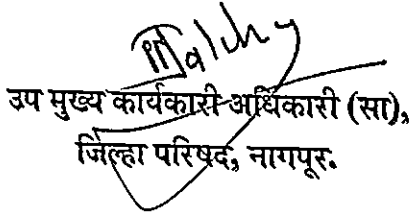 उप मुख्य कार्यकारी अधिकारी (सा),
जिल्हा परिषद, नागपूर.